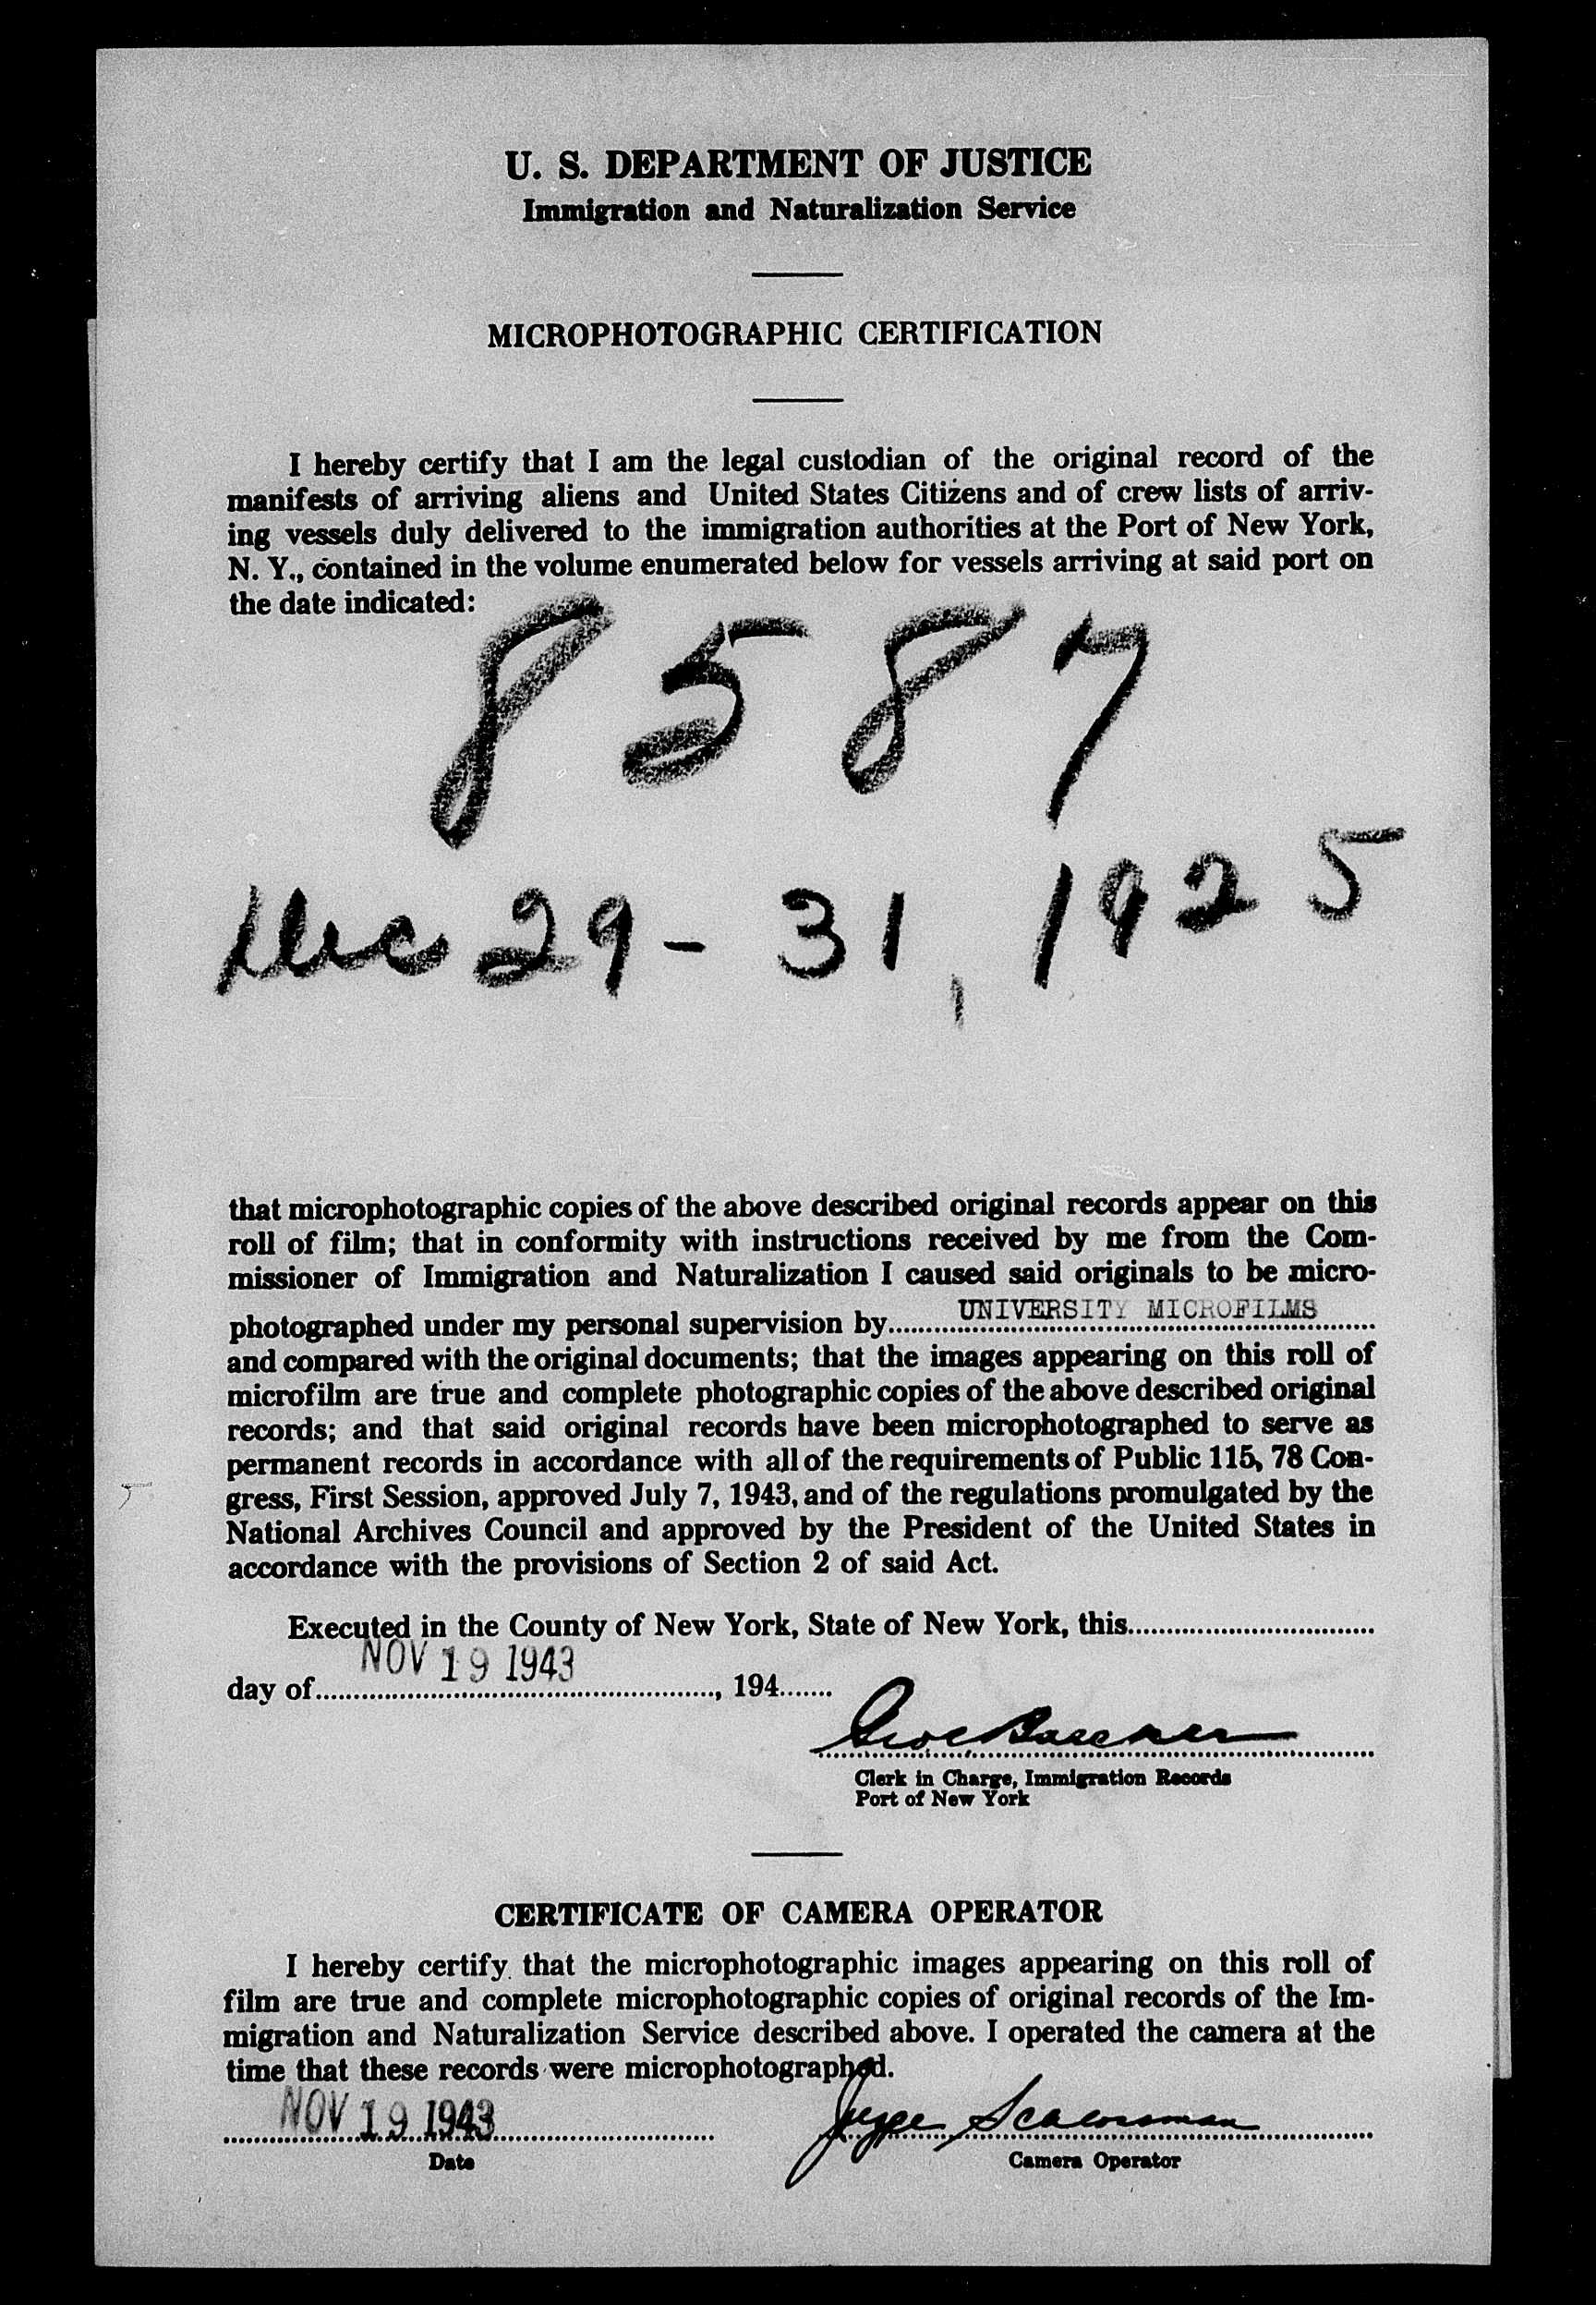 U. S. DEPARTMENT OF JUSTICE
Immigration and Naturalization Service
MICROPHOTOGRAPHIC CERTIFICATION
I hereby certify that I am the legal custodian of the original record of the
manifests of arriving aliens and United States Citizens and of crew lists of arriv-
ing vessels duly delivered to the immigration authorities at the Port of New York,
N. Y., contained in the volume enumerated below for vessels arriving at said port on
the date indicated:
8587
Dec 29 - 31, 1925
that microphotographic copies of the above described original records appear on this
roll of film; that in conformity with instructions received by me from the Com-
missioner of Immigration and Naturalization I caused said originals to be micro-
photographed under my personal supervision by UNIVERSITY MICROFILMS
and compared with the original documents; that the images appearing on this roll of
microfilm are true and complete photographic copies of the above described original
records; and that said original records have been microphotographed to serve as
permanent records in accordance with all of the requirements of Public 115, 78 Con-
gress, First Session, approved July 7, 1943, and of the regulations promulgated by the
National Archives Council and approved by the President of the United States in
accordance with the provisions of Section 2 of said Act.
Executed in the County of New York, State of New York, this
day of NOV 19 1943, 194
Clerk in Charge, Immigration Records
Port of New York
CERTIFICATE OF CAMERA OPERATOR
I hereby certify that the microphotographic images appearing on this roll of
film are true and complete microphotographic copies of original records of the Im-
migration and Naturalization Service described above. I operated the camera at the
time that these records were microphotographed.
NOV 19 1943
Date
Camera Operator